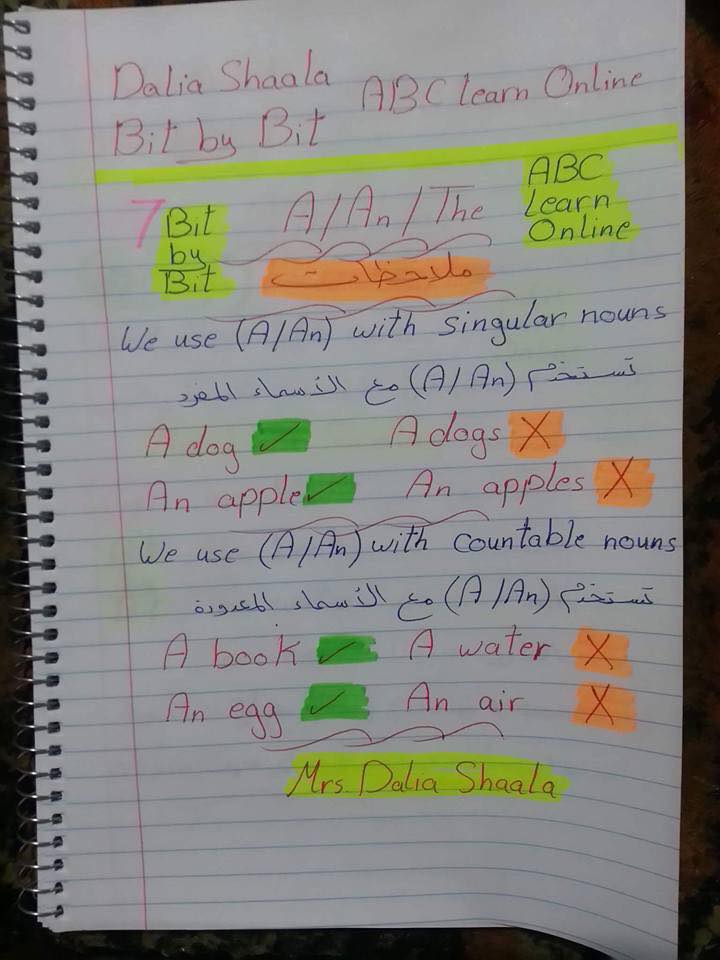 Dalia Shaala ABC learn Online
Bit by Bit
7 Bit by Bit
A/An/The
ABC Learn Online
ملاحظات
We use (A/An) with singular nouns
تستخدم (A/An) مع الأسماء المفرد
A dog ✓ A dogs X
An apple ✓ An apples X
We use (A/An) with countable nouns
تستخدم (A/An) مع الأسماء المعدودة
A book ✓ A water X
An egg ✓ An air X
Mrs. Dalia Shaala